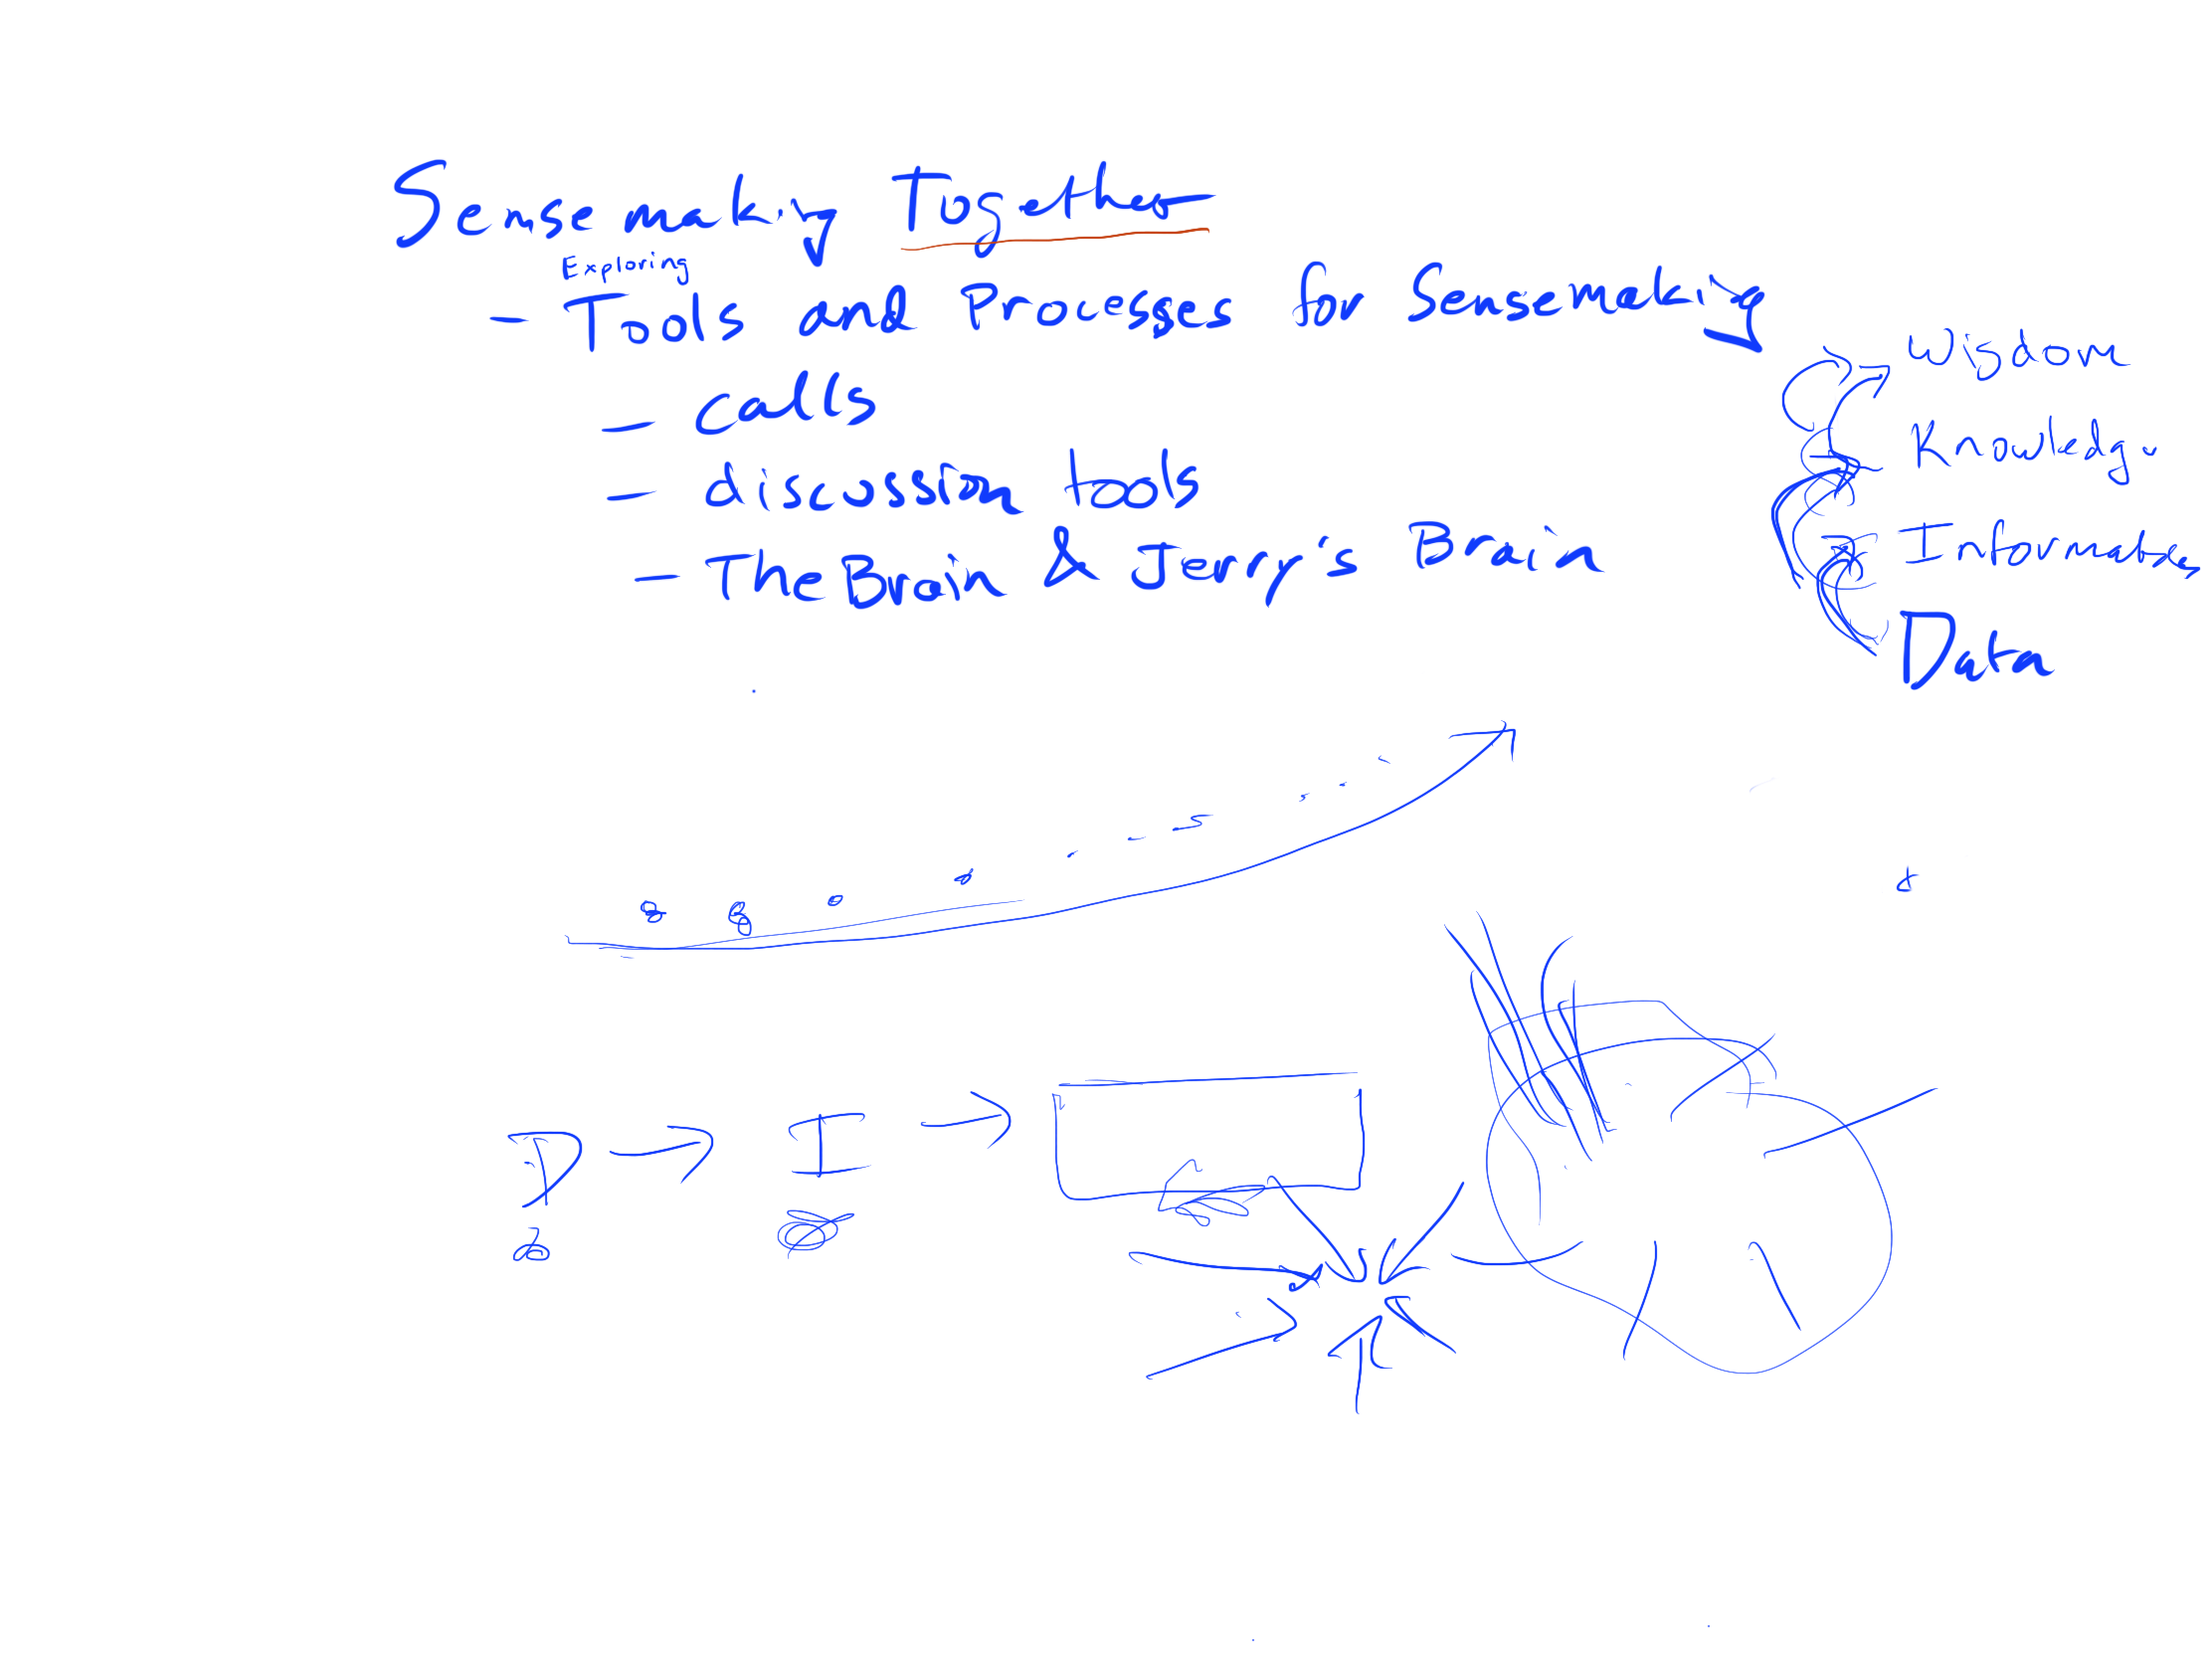 Sensemaking Together
Exploring
- Tools and Processes for Sensemaking
- calls
- discussion tools
- TheBrain & Jerry's Brain
Wisdom
Knowledge
Information
Data
D → I →